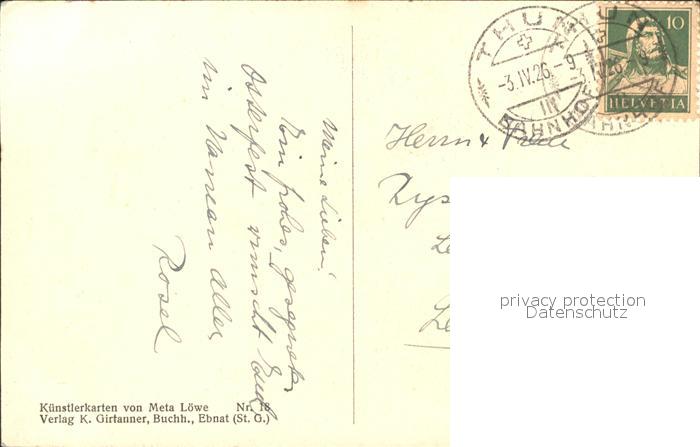 THUN
-3.IV.26.-9
III
BAHNHOF
10
HELVETIA
Meine Lieben!
Ein frohes, gesegnetes
Osterfest wünscht Euch
im Namen Aller
Rosel
Herrn & Frau
privacy protection
Datenschutz
Künstlerkarten von Meta Löwe Nr.
Verlag K. Girtanner, Buchh., Ebnat (St. G.)